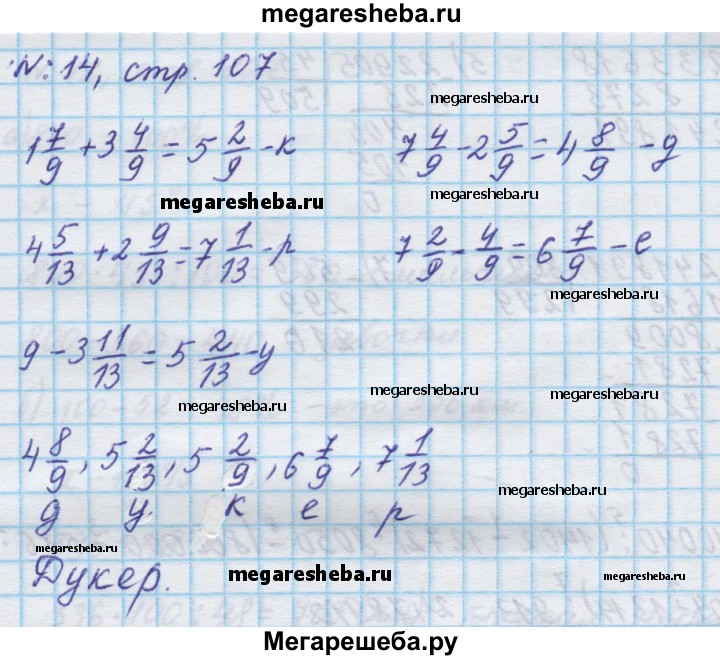 megaresheba.ru
№ 14, стр. 107
megaresheba.ru
1 7/9 + 3 4/9 = 5 2/9 - к    7 4/9 - 2 5/9 = 4 8/9 - д
megaresheba.ru    megaresheba.ru
4 5/13 + 2 9/13 = 7 1/13 - р    7 2/9 - 4/9 = 6 7/9 - е
megaresheba.ru
9 - 3 11/13 = 5 2/13 - у
megaresheba.ru    megaresheba.ru    megaresheba.ru
4 8/9, 5 2/13, 5 2/9, 6 7/9, 7 1/13
megaresheba.ru
д у к е р
megaresheba.ru
Дукер.
megaresheba.ru    megaresheba.ru
Мегарешеба.ру